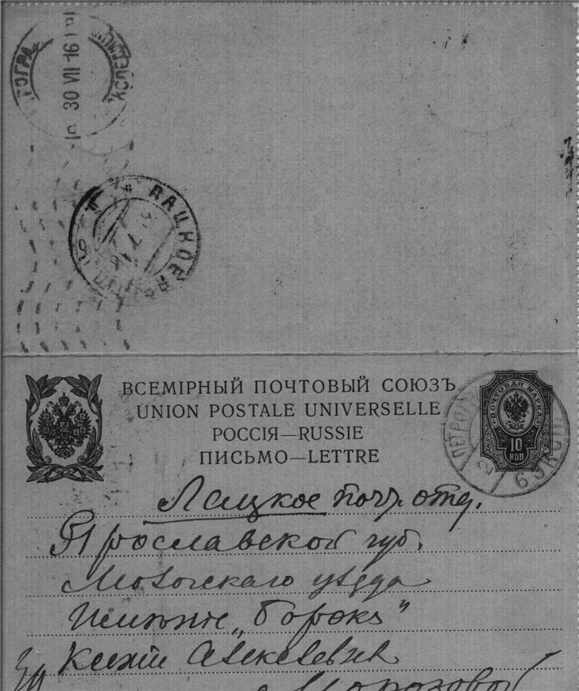 30 VII 16
ЛАЦКОЕ
ВСЕМІРНЫЙ ПОЧТОВЫЙ СОЮЗЪ
UNION POSTALE UNIVERSELLE
РОССІЯ—RUSSIE
ПИСЬМО—LETTRE
ПОЧТОВАЯ МАРКА
10
КОП
Лацкое почт. отд.
Ярославской губ.
уѣзда
Имѣніе „Борокъ"
Алексѣевнѣ
Морозовой